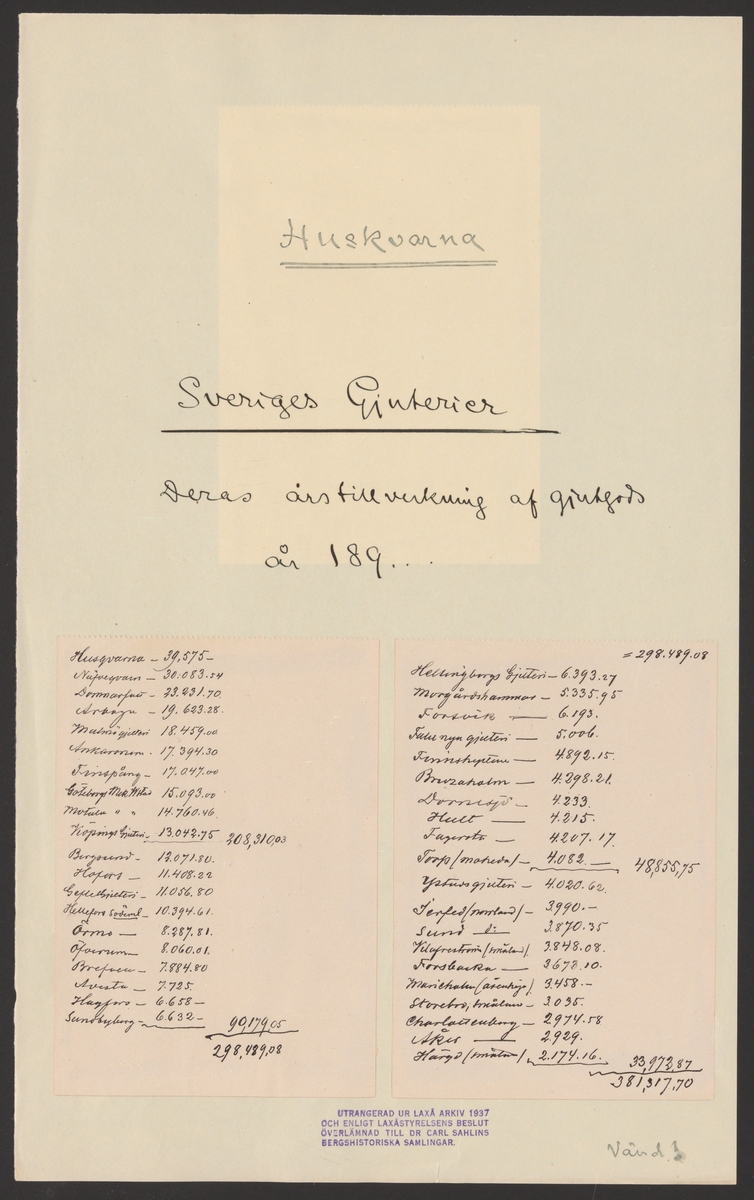 Huskvarna
Sveriges Gjuterier
Deras årstillverkning af gjutgods
år 189...
Husqvarna – 39,575 –
Näfveqvarn – 30.083.54
Domnarfvet – 23.231.70
Arboga – 19.623.28.
Malmö gjuteri 18.459.00
Ankarsrum . 17.394.30
Finspång – 17.047.00
Göteborgs Mek. Wstad 15.093.00
Motala " " 14.760.46.
Köpings Gjuteri – 13.042.75 208,310,03
Bergsund – 12.071.80.
Hofors – 11.408.22
Gefle Gjuteri – 11.056.80
Hellefors Söderml – 10.394.61.
Örmo — 8.287.81.
Öfverum – 8.060.01.
Brefven – 7.884.80
Avesta – 7.725.
Hagfors – 6.658 –
Sundbyberg – 6.632 – 90,179,05
298,489,08
= 298.489.08
Helsingborgs Gjuteri – 6.393.27
Morgårdshammar – 5.335.95
Forsvik — 6.193.
Falu nya gjuteri — 5.006.
Finnshyttan — 4.892.15.
Bruzaholm — 4.298.21.
4.233.
Hult — 4.215.
Fagersta — 4.207.17.
Torp (Moheda) – 4.082. — 48,855,75
Ystads gjuteri – 4.020.62.
Jerfed (Norrland) – 3.990. –
Sund — 3.870.35
Olofsström (Småland) 3.848.08.
Forsbacka — 3673.10.
3.458 –
Storebro, Småland – 3.035.
Charlottenberg – 2974.58
Åker — 2.929.
(Småland) 2.174.16. 33,972,87
381,317,70
UTRANGERAD UR LAXÅ ARKIV 1937
OCH ENLIGT LAXÅSTYRELSENS BESLUT
ÖVERLÄMNAD TILL DR CARL SAHLINS
BERGSHISTORISKA SAMLINGAR.
Vänd!